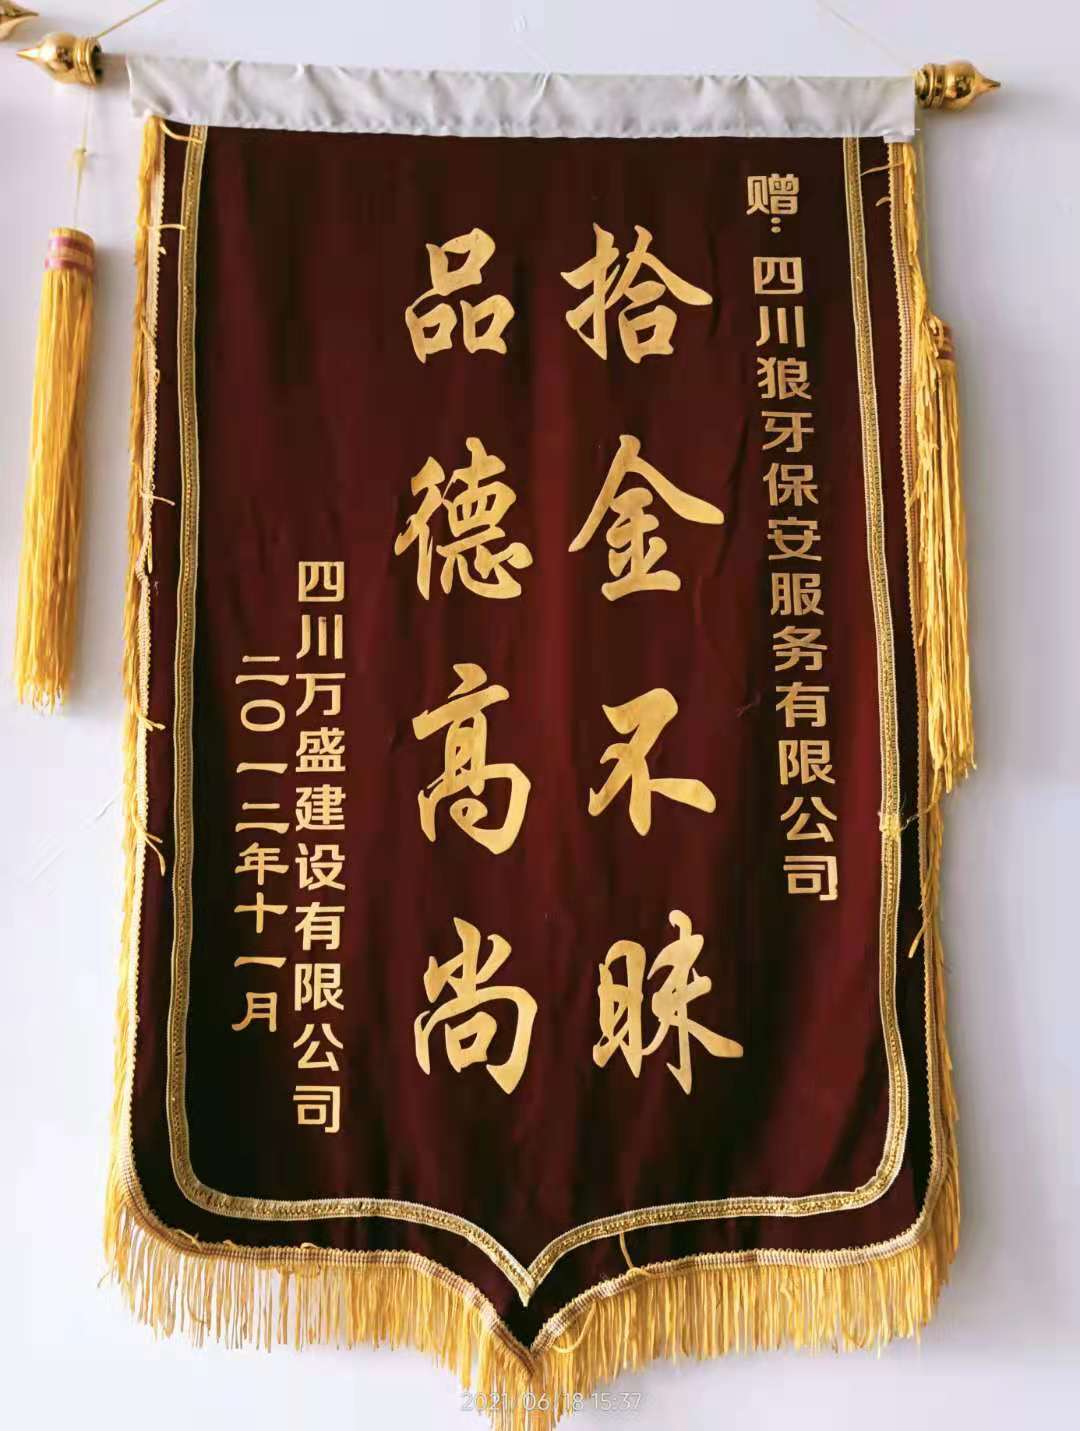 赠：四川狼牙保安服务有限公司
拾金不昧
品德高尚
四川万盛建设有限公司
二〇一二年十一月
2021/06/18 15:37